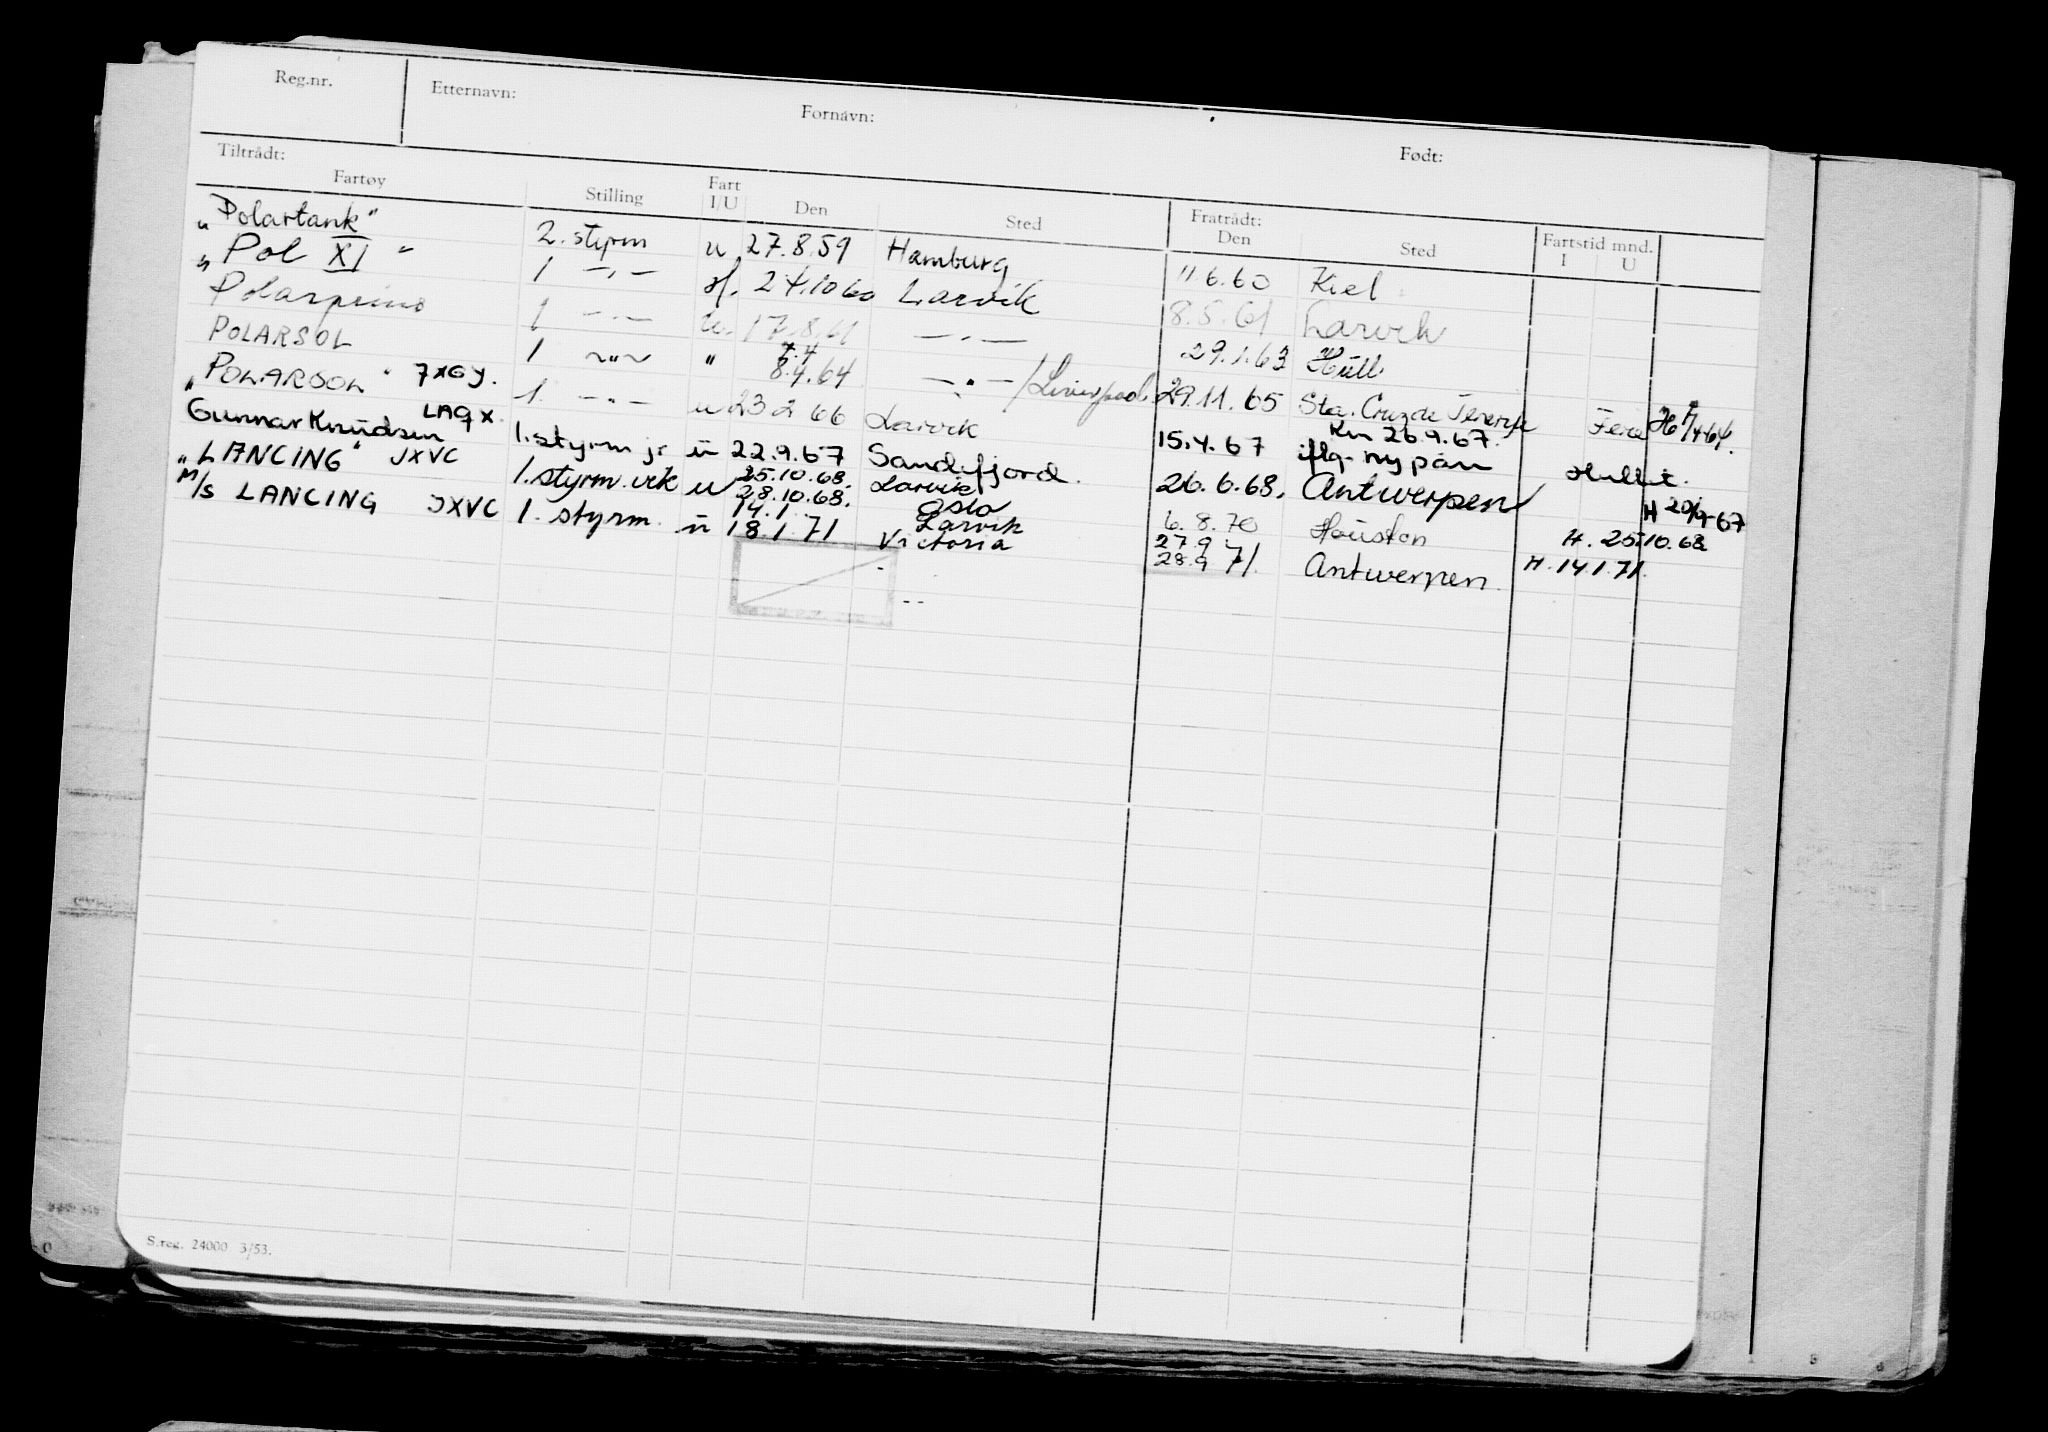 Reg.nr. Etternavn: Fornavn: Født:
Tiltrådt: Fratrådt:
Fartøy Stilling Fart I/U Den Sted Den Sted Fartstid mnd. I U
"Polartank" 2. styrm u 27.8.59 Hamburg 11.6.60 Kiel
"Pol XI" 1 -"- 24.10 60 Larvik 8.5.61 Larvik
Polarprins 1 -"- u. 17.8.61 -"- 29.1.63 Hull
POLARSOL 1 -"- " 7.4 8.4.64 -"-/Liverpool 29.11.65 Sta. Cruz de Tenerife
"POLARSOL" 7XGY. 1. -"- u 23 2 66 Larvik 15.4.67 iflg. ny pån
Gunnar Knudsen LAQX. 1. styrm jr u 22.9.67 Sandefjord. 26.6.68. Antwerpen H 20/9-67
"LANCING" JXVC 1. styrm. vik u 25.10.68. 28.10.68. Larvik Oslo 6.8.70 Houston H. 25.10.68
M/S LANCING JXVC 1. styrm. u 14.1 18.1.71 Larvik Victoria 27.9 28.9 71. Antwerpen. H. 14.1.71.
S.reg. 24000 3/53.